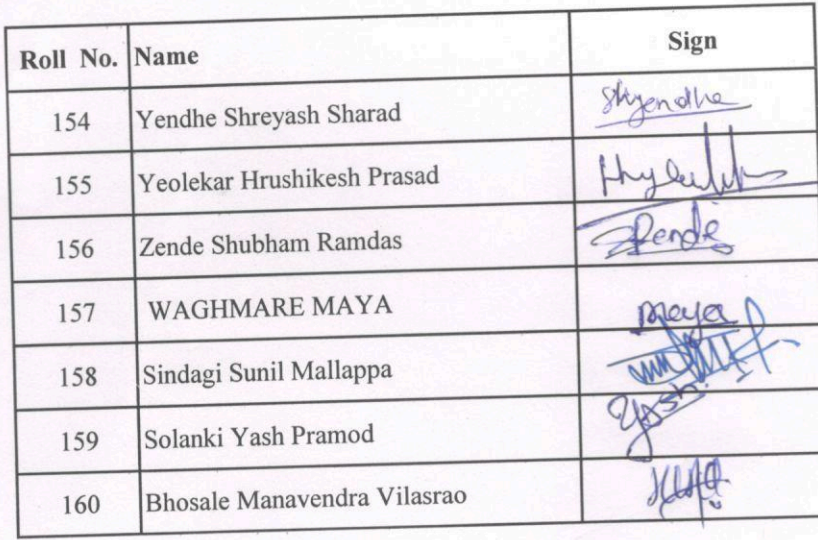 Roll No. Name Sign
154 Yendhe Shreyash Sharad Shyendhe
155 Yeolekar Hrushikesh Prasad
156 Zende Shubham Ramdas Zende
157 WAGHMARE MAYA Maya
158 Sindagi Sunil Mallappa
159 Solanki Yash Pramod Yash
160 Bhosale Manavendra Vilasrao